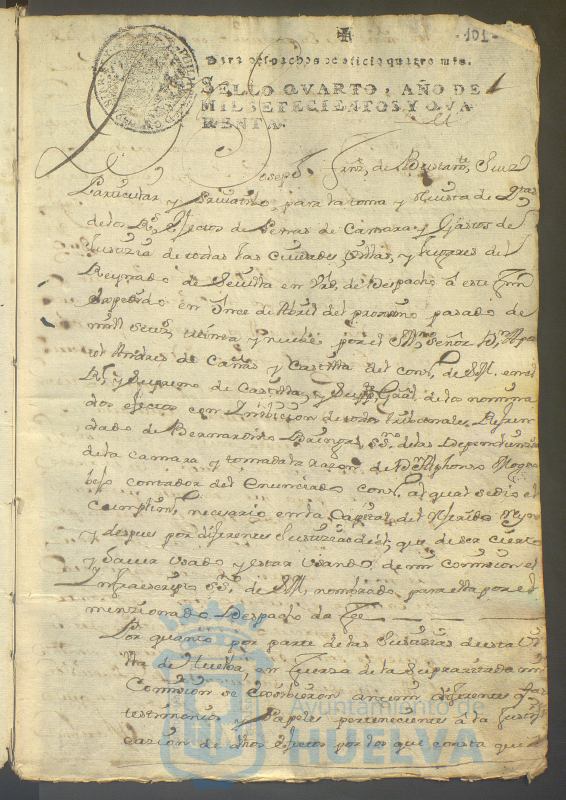 -101-
Para despachos de oficio quatro mrs.
SELLO QVARTO, AÑO DE
MIL SETECIENTOS Y QVA
RENTA.
Joseph Frnz de Bustamte Juez
Particular y Privativo para la toma y Revista de qtas
de los Rs efectos de Penas de Camara y Gastos de
Justicia de todas las Ciudades, Villas, y lugares del
Reynado de Sevilla en vtd de Despacho a este fin
expedido en Once de Abril del proximo pasado de
mill setos treinta y nuebe por el Illmo Señor Dn
Andres de y Castilla del consº de S.M. en el
Rl y Supremo de Castilla, y Gral de los nomina
dos efectos con Inibicion de todos tribunales, Refren
dado de Bernardino ssno de las Dependencias
de la camara y tomada la razon de Dn Alphonso
contador del Enunciado consº al qual se dio el
cumplimto necesario en la Capital del Referido Reyno
y despues por diferentes Justicias de el; que de ser cierto
y haver usado y estar usando de mi Comision el
Infraescripto ssno de S.M. nombrado para ella por el
menzionado Despacho da Fee
Por quanto por parte de las Justicias de esta Vi
lla de Huelva, en fuerza de la mi
Comision se exhibieron ante mi diferentes
testimonios y Papeles pertenecientes a la justifi
cazion de dhos efectos por los que consta que
Ayuntamiento de
HUELVA